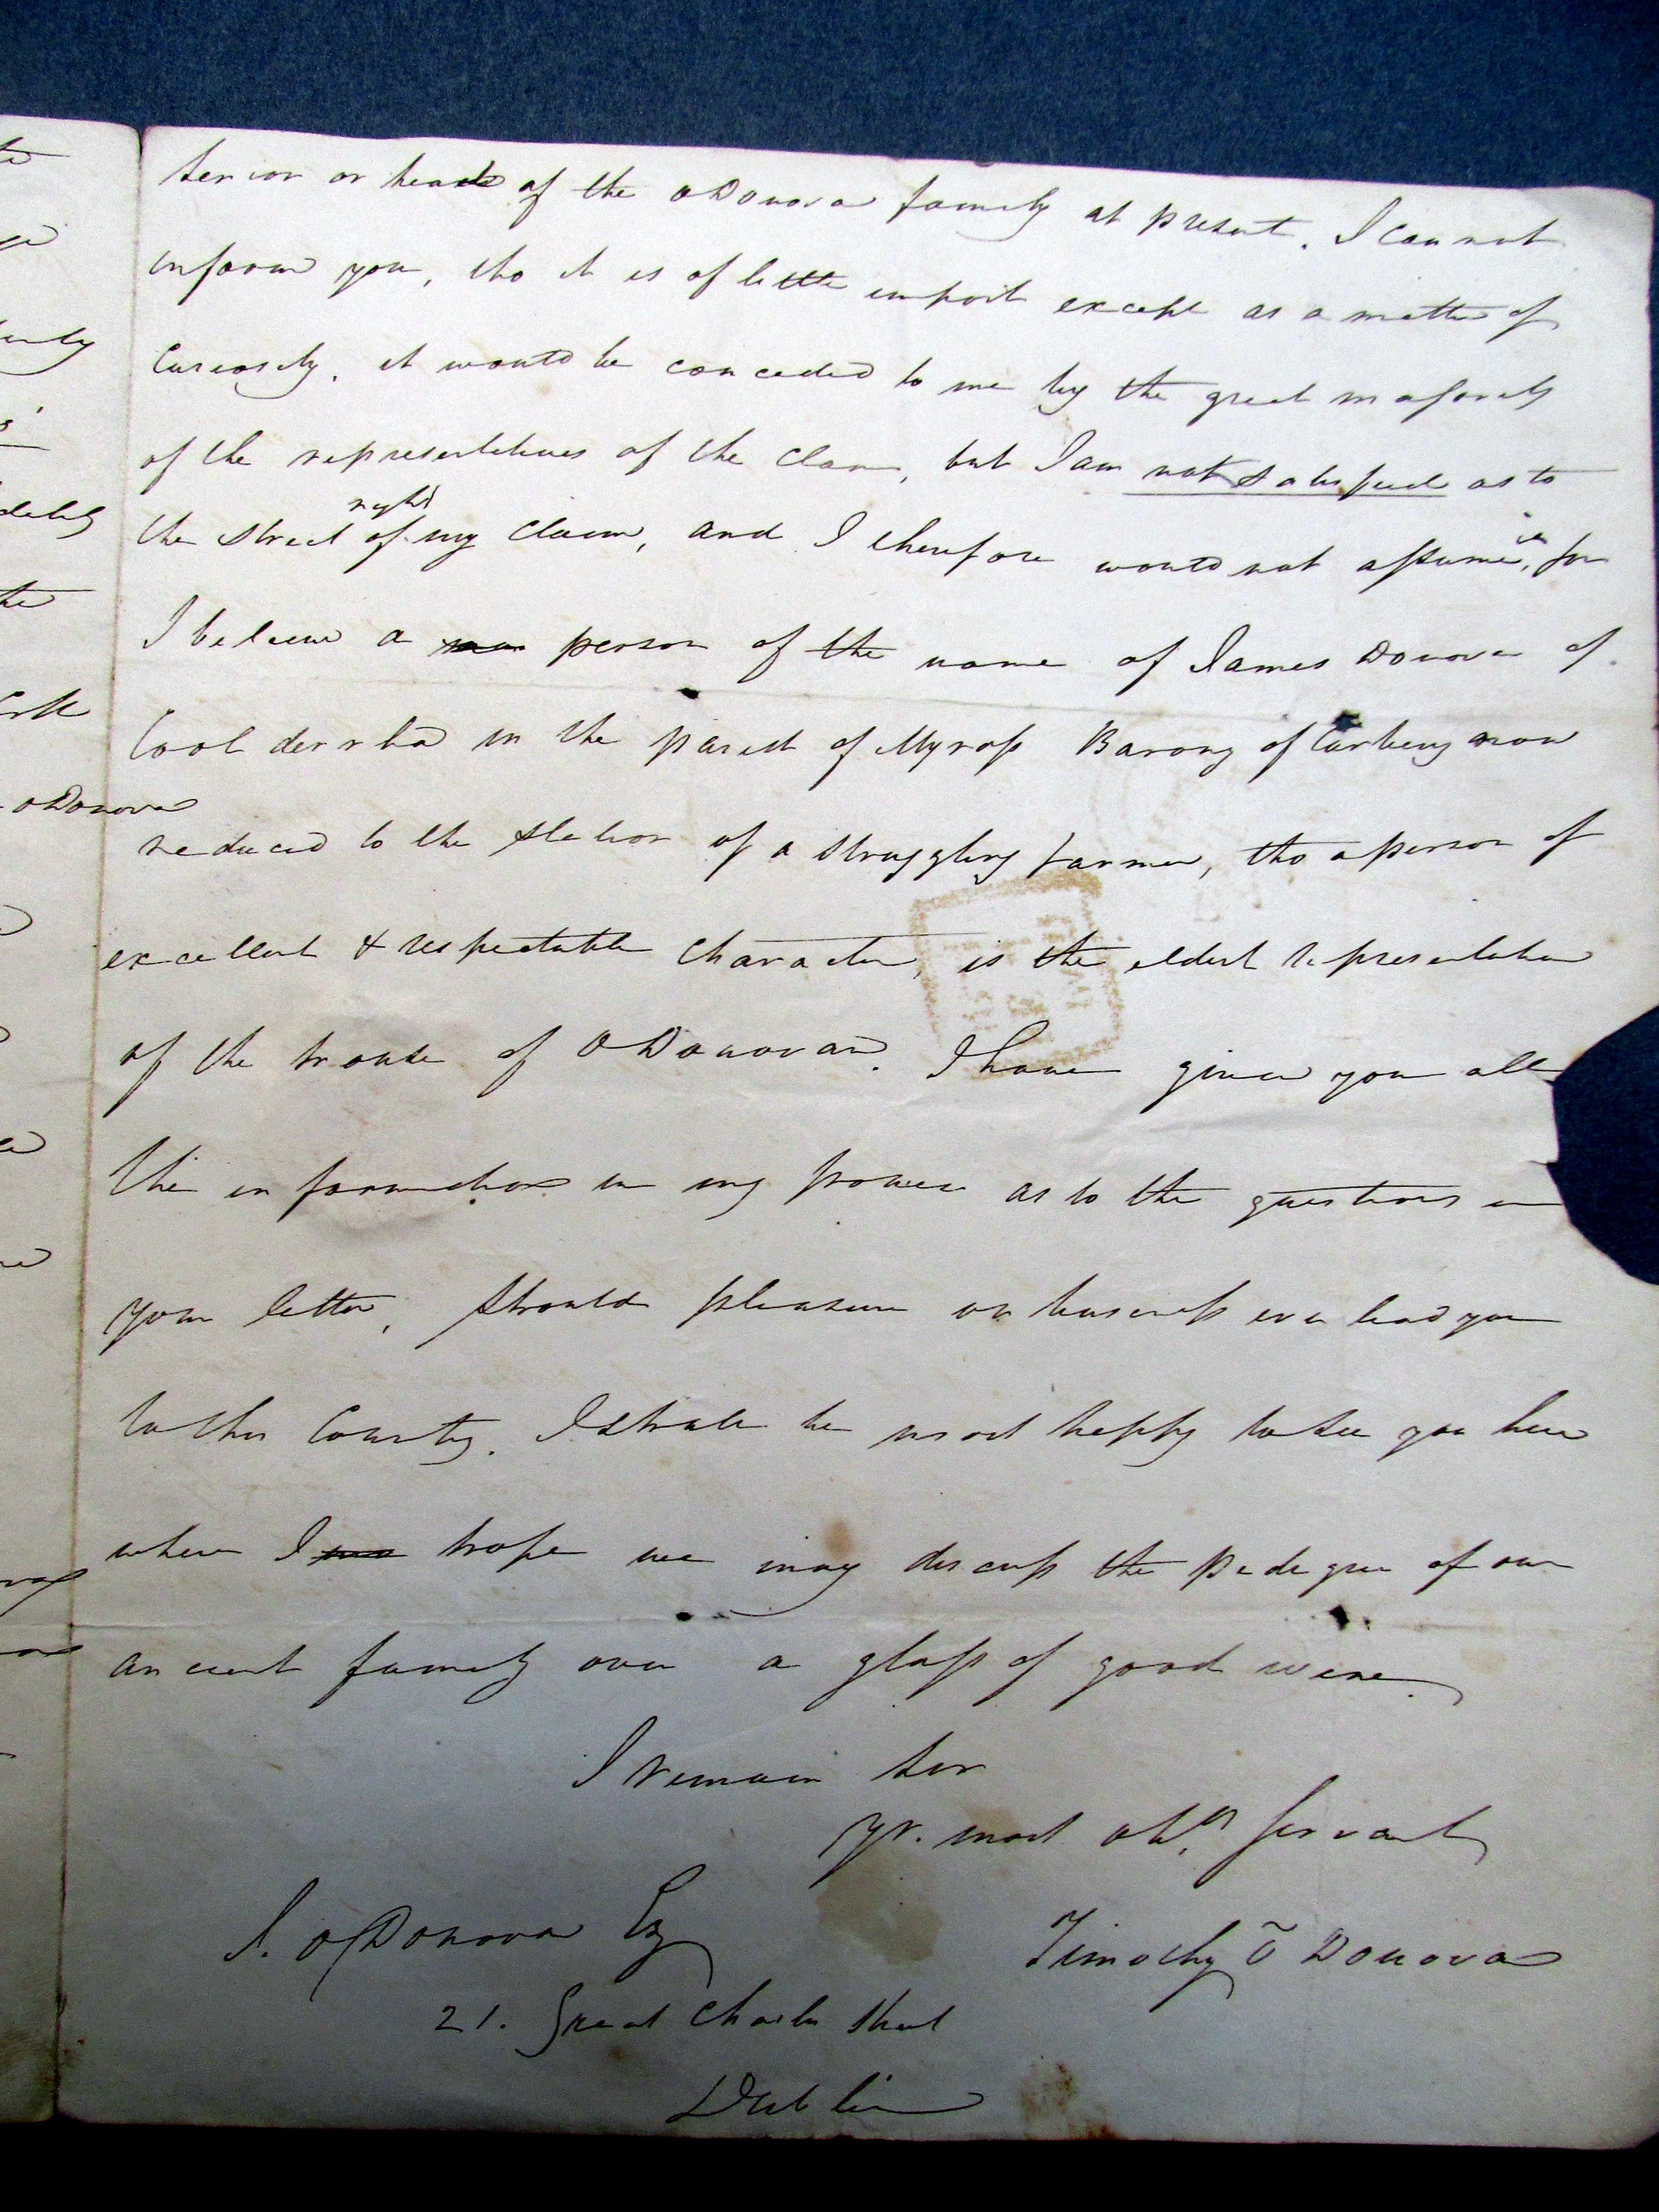 Senior or head of the ODonovan family at present. I can not
inform you, tho it is of little import except as a matter of
Curiosity. it would be conceded to me by the great majority
of the representatives of the Clan, but I am not satisfied as to
right
the strict of my Claim, and I therefore would not assume it, for
I believe a person of the name of James Donovan of
Cooldurrha in the parish of Myross Barony of Carbery now
ODonovan
reduced to the station of a struggling farmer, tho a person of
excellent & respectable Character, is the eldest representative
of the house of ODonovan. I have given you all
the information in my power as to the questions in
your letter, Should pleasure or business ever lead you
to this County. I shall be most happy to see you here
where I hope we may discuss the pedigree of our
ancient family over a glass of good wine.
I remain Sir
yr. most obt. Servant
J. ODonovan Esq
Timothy O Donovan
21. Great Charles Street
Dublin